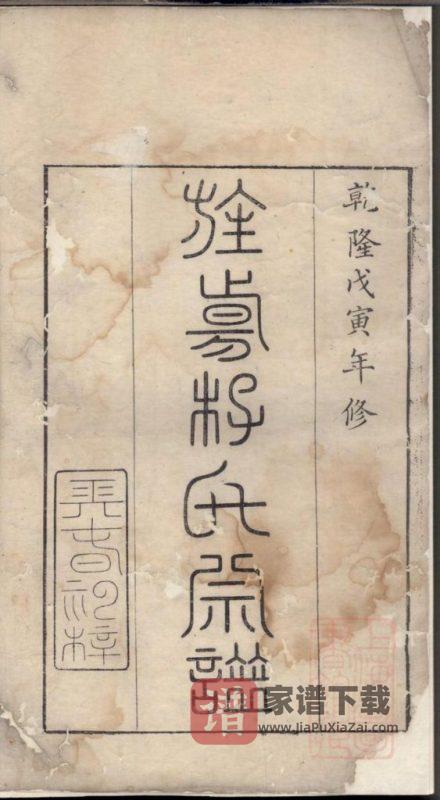 乾隆戊寅年修
旌昜李氏宗譜
谱
家谱下载
www.JiaPuXiaZai.com